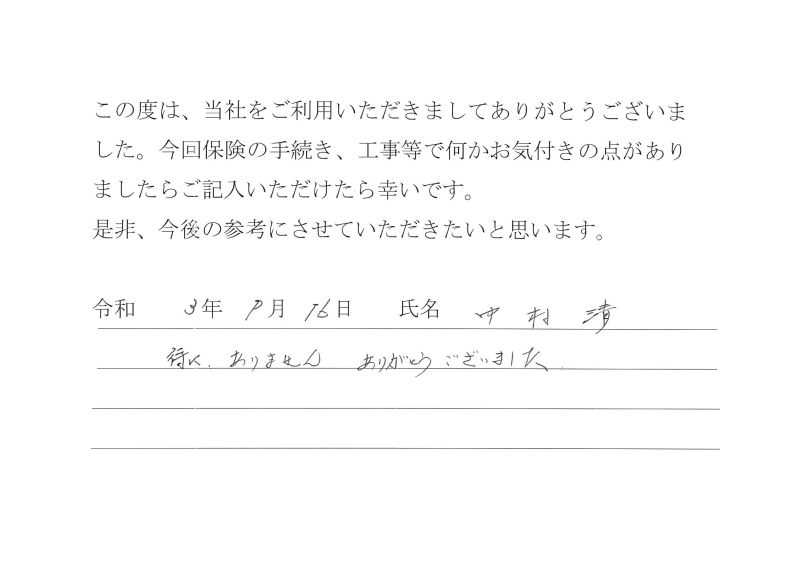 この度は、当社をご利用いただきましてありがとうございま
した。今回保険の手続き、工事等で何かお気付きの点があり
ましたらご記入いただけたら幸いです。
是非、今後の参考にさせていただきたいと思います。
令和 3年 9月 16日 氏名 中村 清
特に、ありません ありがとうございました